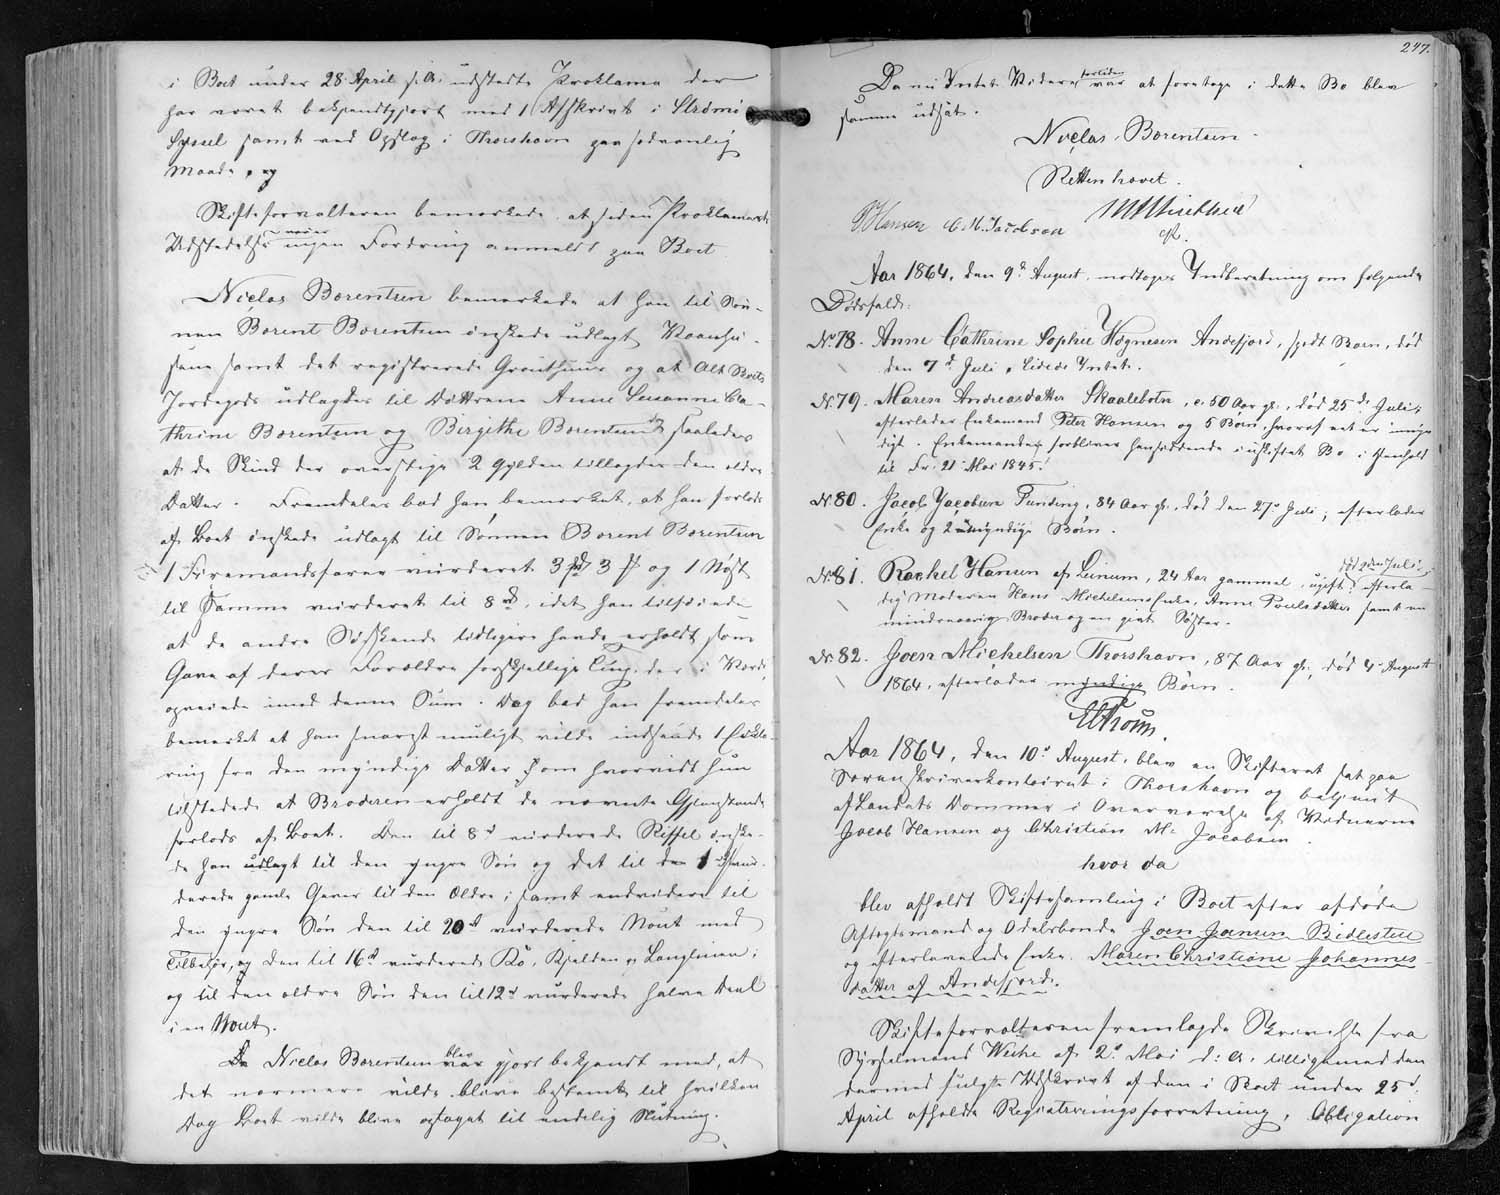 i Boet under 28 April d: A: udstedte Proklama der
har været bekjendtgjort med 1 Afskrivt i Strømø
Syssel samt ved Opslag i Thorshavn paa sedvanlig
Maade, og
Skifteforvalteren bemærkede at siden Proklamaets
Udstedelse ingen Fordring anmeldt paa Boet
Niclas Borentsen bemærkede at han til Søn-
nen Borent Borentsen ønskede udlagt Vaanhu-
sene samt det registrerede Grouthuus og at Alt Boets
Jordegods udlagdes til Døttrene Anne Susanne Ca-
thrine Borentsen og Birgithe Borentsen saaledes
at de Skind der overstige 2 Gylden tillægdes den ældre
Datter. Fremdeles bad han bemærket, at han forlods
af Boet ønskede udlagt til Sønnen Borent Borentsen
1 Firemandsfarer vurderet 3 rd 3 ß og 1 Nøst
til Samme vurderet til 8 rd, idet han tilføiede
at de andre Søskende tidligere havde erholdt som
Gave af deres Forældre forskjellige Ting, der i Værdi
opveiede imod denne Sum. Og bad han fremdeles
bemærket at han snarest muligt vilde indsende 1 Erklæ-
ring fra den myndige Datter om hvorvidt hun
tilstedede at Broderen erholdt de nævnte Gjenstande
forlods af Boet. Den til 8 rd vurderede Riffel ønske-
de han udlagt til den yngre Søn og det til den
gamle Gevær til den Ældre; samt endvidere til
den yngre Søn den til 20 rd vurderede Nout med
Tilbehør, og den til 16 rd vurderede Ko, Kjelden og Langlinen;
og til den ældre Søn den til 12 rd vurderede halve Deel
i en Nout.
Da Niclas Borentsen blev gjort bekjendt med, at
det nærmere vilde blive bestemt til hvilken
Dag Boet vilde blive optaget til endelig Slutning.
247.
Da nu Intet Videre var at foretage i dette Bo blev
samme udsat.
Niclas Borentsen.
Retten hævet.
Hansen C. M. Jacobsen
Aar 1864, den 9de August, modtoges Indberetning om følgende
Dødsfald:
No 78. Anne Cathrine Sophie Høgnesen Andefjord, spædt Barn, død
den 7d Juli, Eiede Intet.
No 79. Maren Andreasdatter Skaalebotn, c. 50 Aar gl., død 25d Juli,
efterlader Enkemand Peter Hansen og 5 Børn, hvoraf eet er umyn-
digt. Enkemanden forbliver hensiddende i uskiftet Bo i Henhold
til Fr: 21 Mai 1845.
No 80. Jacob Jacobsen Funding, 84 Aar gl., død den 27d Juli, efterlader
Enke og 2 umyndige Børn.
No 81. Rachel Hansen af Leinum, 24 Aar gammel, ugift, efterla-
der Moderen Hans Michelsens Enke, Anne Poulsdatter samt en
mindreaarig Broder og en givt Søster.
No 82. Joen Michelsen Thorshavn, 87 Aar gl., død 4d August
1864, efterlader myndige Børn.
Aar 1864, den 10d August, blev en Skifteret sat paa
Sorenskriverkontoiret i Thorshavn og betjent
af Landets Dommer i Overværelse af Vidnerne
Jacob Hansen og Christian M. Jacobsen.
hvor da
blev afholdt Skiftesamling i Boet efter afdøde
Aftægtsmand og Odelsbonde Joen Joensen Bidlestee
og efterlevende Enke Maren Christiane Johannes-
datter af Andefjord.
Skifteforvalteren fremlagde Skrivelse fra
Sysselmand Weihe af 2d Mai d: A: tilligemed den
dermed fulgte Udskrivt af den i Boet under 25d
April afholdte Registreringsforretning, Obligation